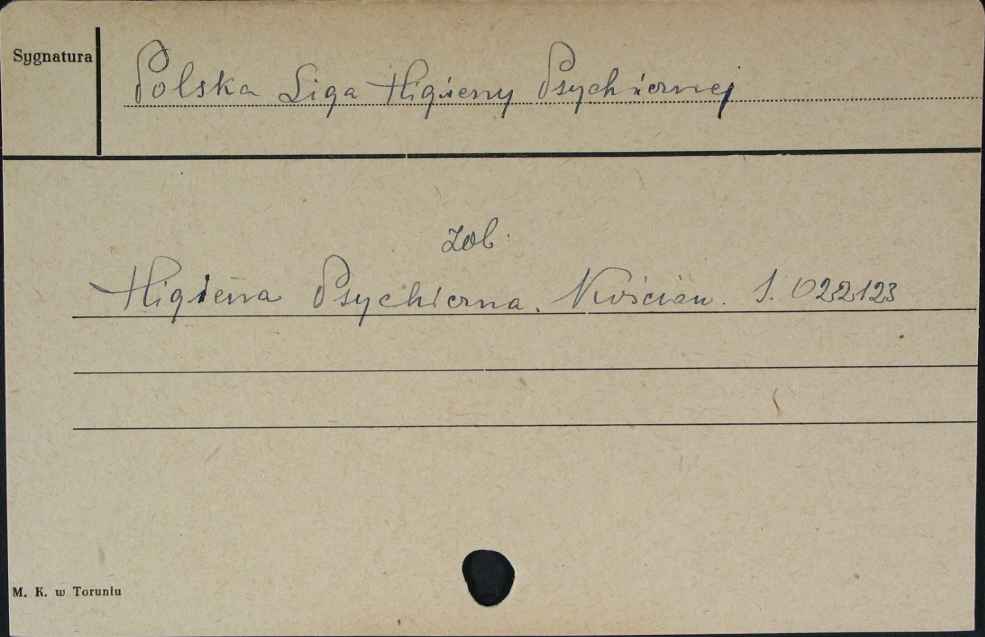 Sygnatura
Polska Liga Higieny Psychicznej
zob.
Higiena Psychiczna. Kościan. S. 022123
M. K. w Toruniu